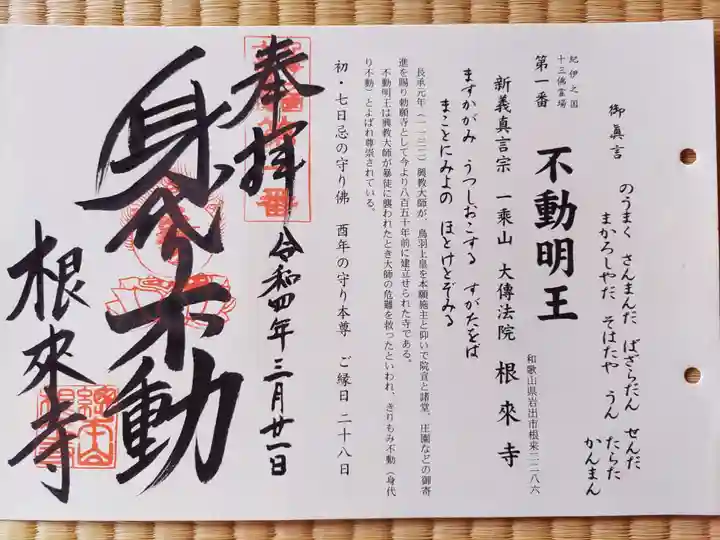 御真言
のうまく さんまんだ ばざらだん せんだ
まかろしやだ そはたや うん たらた
かんまん
紀伊之国
十三佛霊場
第一番
不動明王
和歌山県岩出市根来二二八六
新義真言宗 一乗山 大傳法院 根來寺
ますかがみ うつしおこする すがたをば
まことにみよの ほとけとぞみる
長承元年（一一三二）興教大師が、鳥羽上皇を本願施主と仰いで院宣と諸堂、庄園などの御寄
進を賜り勅願寺として今より八百五十年前に建立せられた寺である。
不動明王は興教大師が暴徒に襲われたとき大師の危難を救ったといわれ、きりもみ不動（身代
り不動）とよばれ尊崇されている。
初・七日忌の守り佛 酉年の守り本尊 ご縁日 二十八日
奉拝
令和四年三月廿一日
身代不動
根來寺